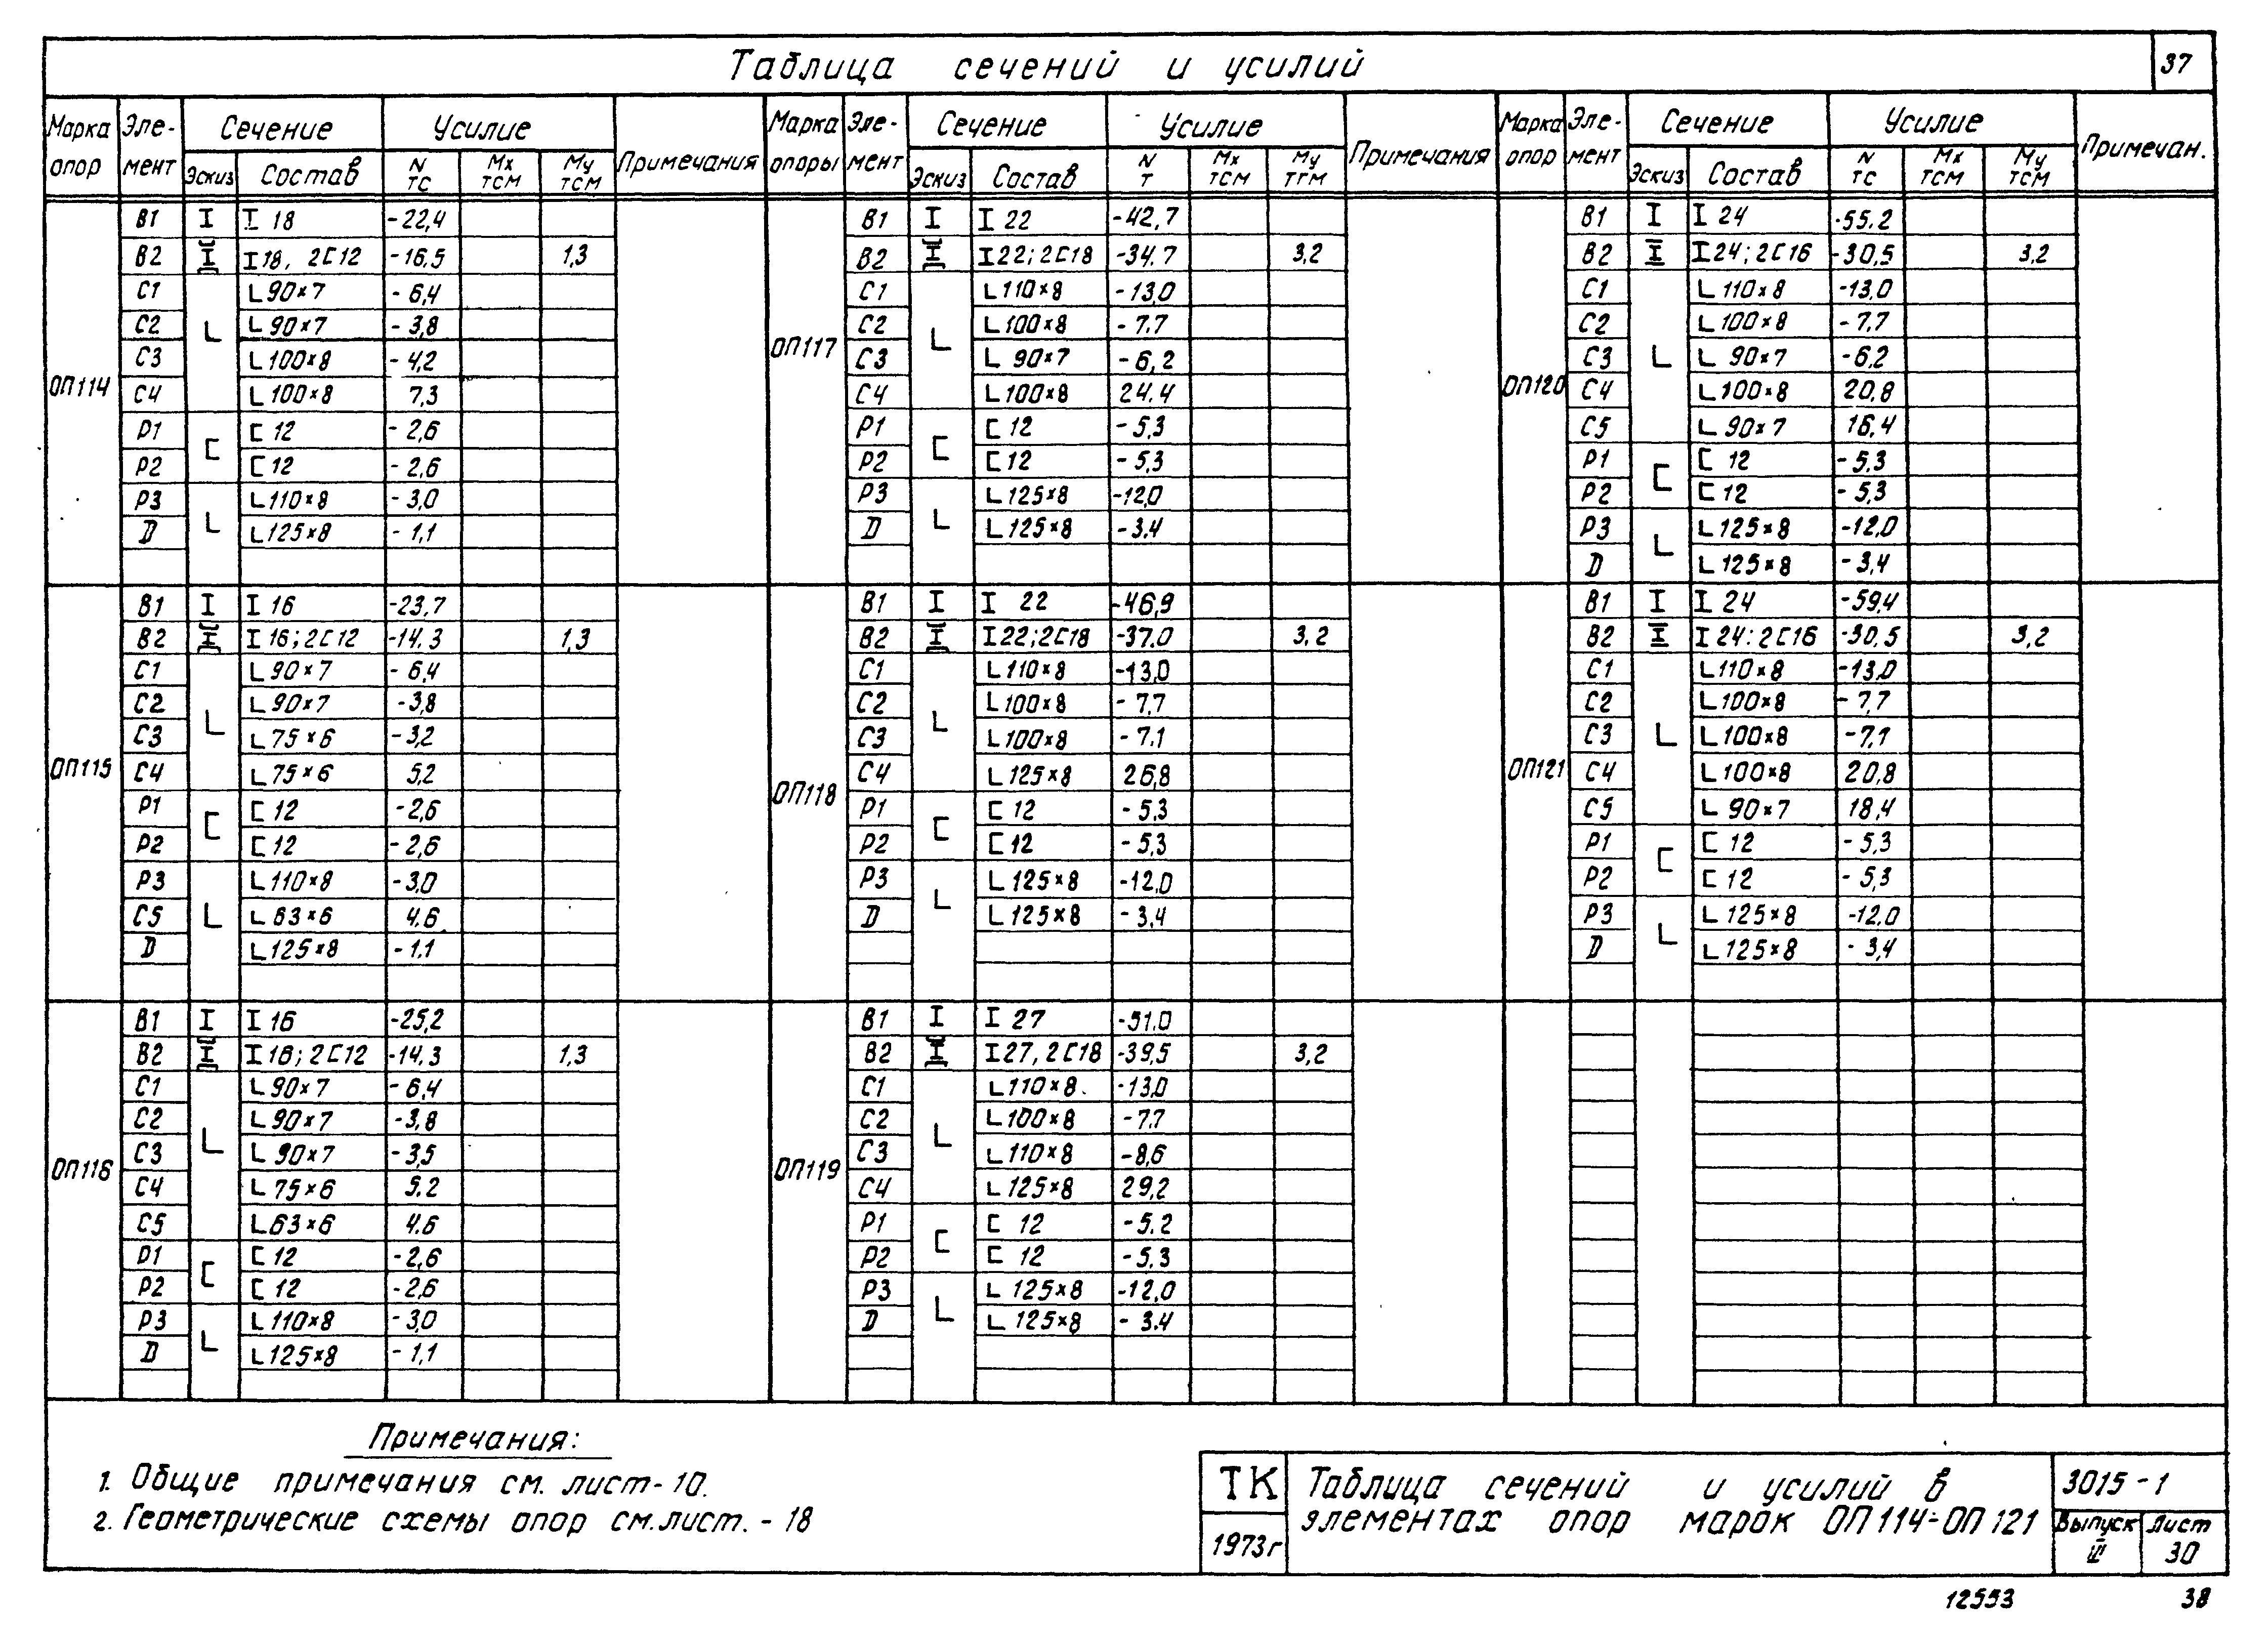 Таблица сечений и усилий
37
Марка опор Эле-мент Сечение Усилие Примечания
Эскиз Состав N тс Mx тсм My тсм
ОП114
В1 I I 18 -22,4
В2 I 18, 2[12 -16,5 1,3
С1 L 90×7 -6,4
С2 L 90×7 -3,8
С3 L 100×8 -4,2
С4 L 100×8 7,3
Р1 [ 12 -2,6
Р2 [ 12 -2,6
Р3 L 110×8 -3,0
D L 125×8 -1,1
ОП115
В1 I I 16 -23,7
В2 I 16; 2[12 -14,3 1,3
С1 L 90×7 -6,4
С2 L 90×7 -3,8
С3 L 75×6 -3,2
С4 L 75×6 5,2
Р1 [ 12 -2,6
Р2 [ 12 -2,6
Р3 L 110×8 -3,0
С5 L 63×6 4,6
D L 125×8 -1,1
ОП116
В1 I I 16 -25,2
В2 I 16; 2[12 -14,3 1,3
С1 L 90×7 -6,4
С2 L 90×7 -3,8
С3 L 90×7 -3,5
С4 L 75×6 5,2
С5 L 63×6 4,6
Р1 [ 12 -2,6
Р2 [ 12 -2,6
Р3 L 110×8 -3,0
D L 125×8 -1,1
Марка опоры Эле-мент Сечение Усилие Примечания
Эскиз Состав N т Mx тсм My тгм
ОП117
В1 I I 22 -42,7
В2 I 22; 2[18 -34,7 3,2
С1 L 110×8 -13,0
С2 L 100×8 -7,7
С3 L 90×7 -6,2
С4 L 100×8 24,4
Р1 [ 12 -5,3
Р2 [ 12 -5,3
Р3 L 125×8 -12,0
D L 125×8 -3,4
ОП118
В1 I I 22 -46,9
В2 I 22; 2[18 -37,0 3,2
С1 L 110×8 -13,0
С2 L 100×8 -7,7
С3 L 100×8 -7,1
С4 L 125×8 26,8
Р1 [ 12 -5,3
Р2 [ 12 -5,3
Р3 L 125×8 -12,0
D L 125×8 -3,4
ОП119
В1 I I 27 -51,0
В2 I 27, 2[18 -39,5 3,2
С1 L 110×8 -13,0
С2 L 100×8 -7,7
С3 L 110×8 -8,6
С4 L 125×8 29,2
Р1 [ 12 -5,2
Р2 [ 12 -5,3
Р3 L 125×8 -12,0
D L 125×8 -3,4
Марка опор Эле-мент Сечение Усилие Примечан.
Эскиз Состав N тс Mx тсм My тсм
ОП120
В1 I I 24 -55,2
В2 I 24; 2[16 -30,5 3,2
С1 L 110×8 -13,0
С2 L 100×8 -7,7
С3 L 90×7 -6,2
С4 L 100×8 20,8
С5 L 90×7 16,4
Р1 [ 12 -5,3
Р2 [ 12 -5,3
Р3 L 125×8 -12,0
D L 125×8 -3,4
ОП121
В1 I I 24 -59,4
В2 I 24: 2[16 -30,5 3,2
С1 L 110×8 -13,0
С2 L 100×8 -7,7
С3 L 100×8 -7,1
С4 L 100×8 20,8
С5 L 90×7 18,4
Р1 [ 12 -5,3
Р2 [ 12 -5,3
Р3 L 125×8 -12,0
D L 125×8 -3,4
Примечания:
1. Общие примечания см. лист-10.
2. Геометрические схемы опор см.лист.-18
ТК
1973г
Таблица сечений и усилий в
элементах опор марок ОП114-ОП121
3015-1
Выпуск III
Лист 30
12553
38